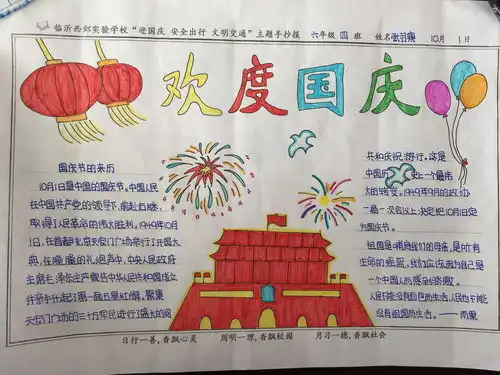 临沂西郊实验学校“迎国庆 安全出行 文明交通”主题手抄报 六年级 四 班 姓名 10月 1日
欢度国庆
国庆节的来历
10月1日是中国的国庆节。中国人民
在中国共产党的领导下,前赴后继,
取得了人民革命的伟大胜利。1949年10月
1日,在首都北京天安门广场举行了开国大
典,在隆隆的礼炮声中,中央人民政府
主席毛泽东庄严宣告中华人民共和国成立
并亲手升起了第一面五星红旗,聚集
天安门广场的三十万军民进行了盛大的阅
兵和庆祝游行。这是
中国历史上一个最伟
大的转变。1949年9月的政协
一届一次会议上决定把10月1日定
为国庆节。
祖国是哺育我们的母亲,是所有
生命的摇篮,我们应该因为自己是
一个中国人而感到骄傲。
人民不能没有面包而生活,人民也不能
没有祖国而生活。——雨果
日行一善,香飘心灵 周明一理,香飘校园 月习一德,香飘社会